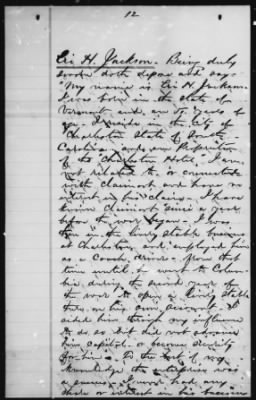 12
H. Jackson. Being duly
sworn doth depose and say
My name is H. Jackson.
I was born in the State of
Vermont and am Years of
age. I reside in the City of
Charleston State of South
Carolina and am Proprietor
of the "Charleston Hotel". I am
not related to, or connected
with claimant and have no
interest in his claim. I have
known claimant since a year
before the war began. I was
then in the livery stable business
at Charleston and employed him
as a coach driver. From that
time until he went to Colum-
bia, during the second year of
the war to open a livery stable
there, on his own account. I
aided him through my influence
to do so but did not furnish
him capital, or become security
for him. To the best of my
knowledge the enterprise was
a success. I never had any
share or interest in his business